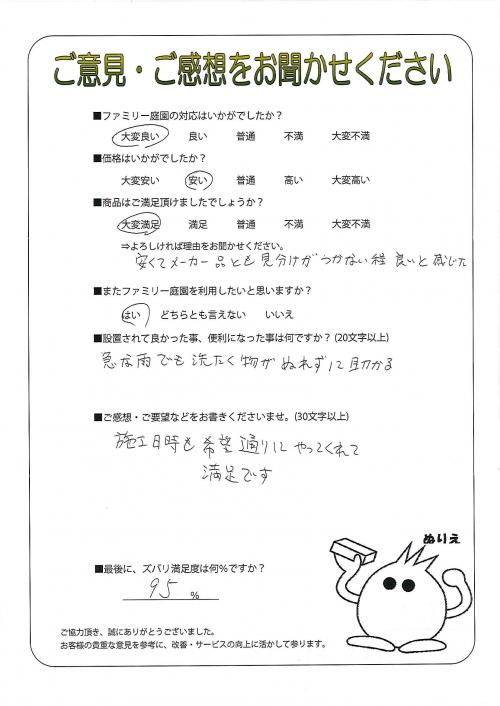 ご意見・ご感想をお聞かせください
■ファミリー庭園の対応はいかがでしたか？
大変良い 良い 普通 不満 大変不満
■価格はいかがでしたか？
大変安い 安い 普通 高い 大変高い
■商品はご満足頂けましたでしょうか？
大変満足 満足 普通 不満 大変不満
⇒よろしければ理由をお聞かせください。
安くてメーカー品とも見分けがつかない程 良いと感じた
■またファミリー庭園を利用したいと思いますか？
はい どちらとも言えない いいえ
■設置されて良かった事、便利になった事は何ですか？(20文字以上)
急な雨でも洗たく物がぬれずに助かる
■ご感想・ご要望などをお書きくださいませ。(30文字以上)
施工日時も希望通りにやってくれて
満足です
ぬりえ
■最後に、ズバリ満足度は何%ですか？
95 %
ご協力頂き、誠にありがとうございました。
お客様の貴重な意見を参考に、改善・サービスの向上に活かして参ります。